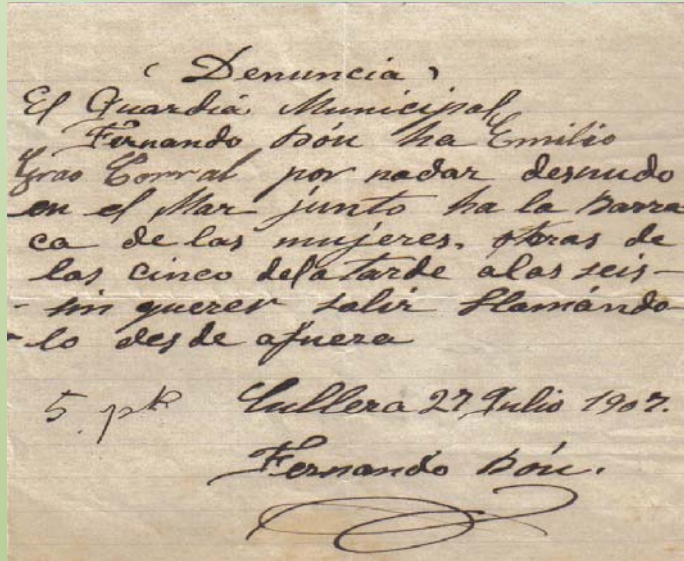 ( Denuncia )
El Guardia Municipal,
Fernando Bóu ha Emilio
Grao Corral por nadar desnudo
en el Mar junto ha la Barra
ca de las mujeres, oras de
las cinco de la tarde a las seis -
- sin querer salir llamándo
- lo desde afuera
5. pts Cullera 27 Julio 1907.
Fernando Bóu.